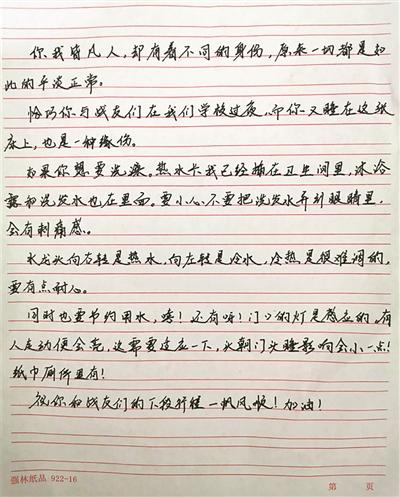 你我皆凡人，却有着不同的身份，原来一切都是如
此的平淡正常。
恰巧你与战友们在我们学校过夜，而你又睡在这张
床上，也是一种缘份。
如果你想要洗澡。热水卡我已经插在卫生间里，沐浴
露和洗发水也在里面。要小心不要把洗发水弄到眼睛里，
会有刺痛感。
水龙头向右转是热水，向左转是冷水，冷热是很难调的，
要有点耐心。
同时也要节约用水，哦！还有呀！门口的灯是感应的，有
人走动便会亮，这需要适应一下，头朝门头睡影响会小一点！
纸巾厕所里有！
祝你和战友们的下段行程一帆风顺！加油！
强林纸品 922-16
第 页